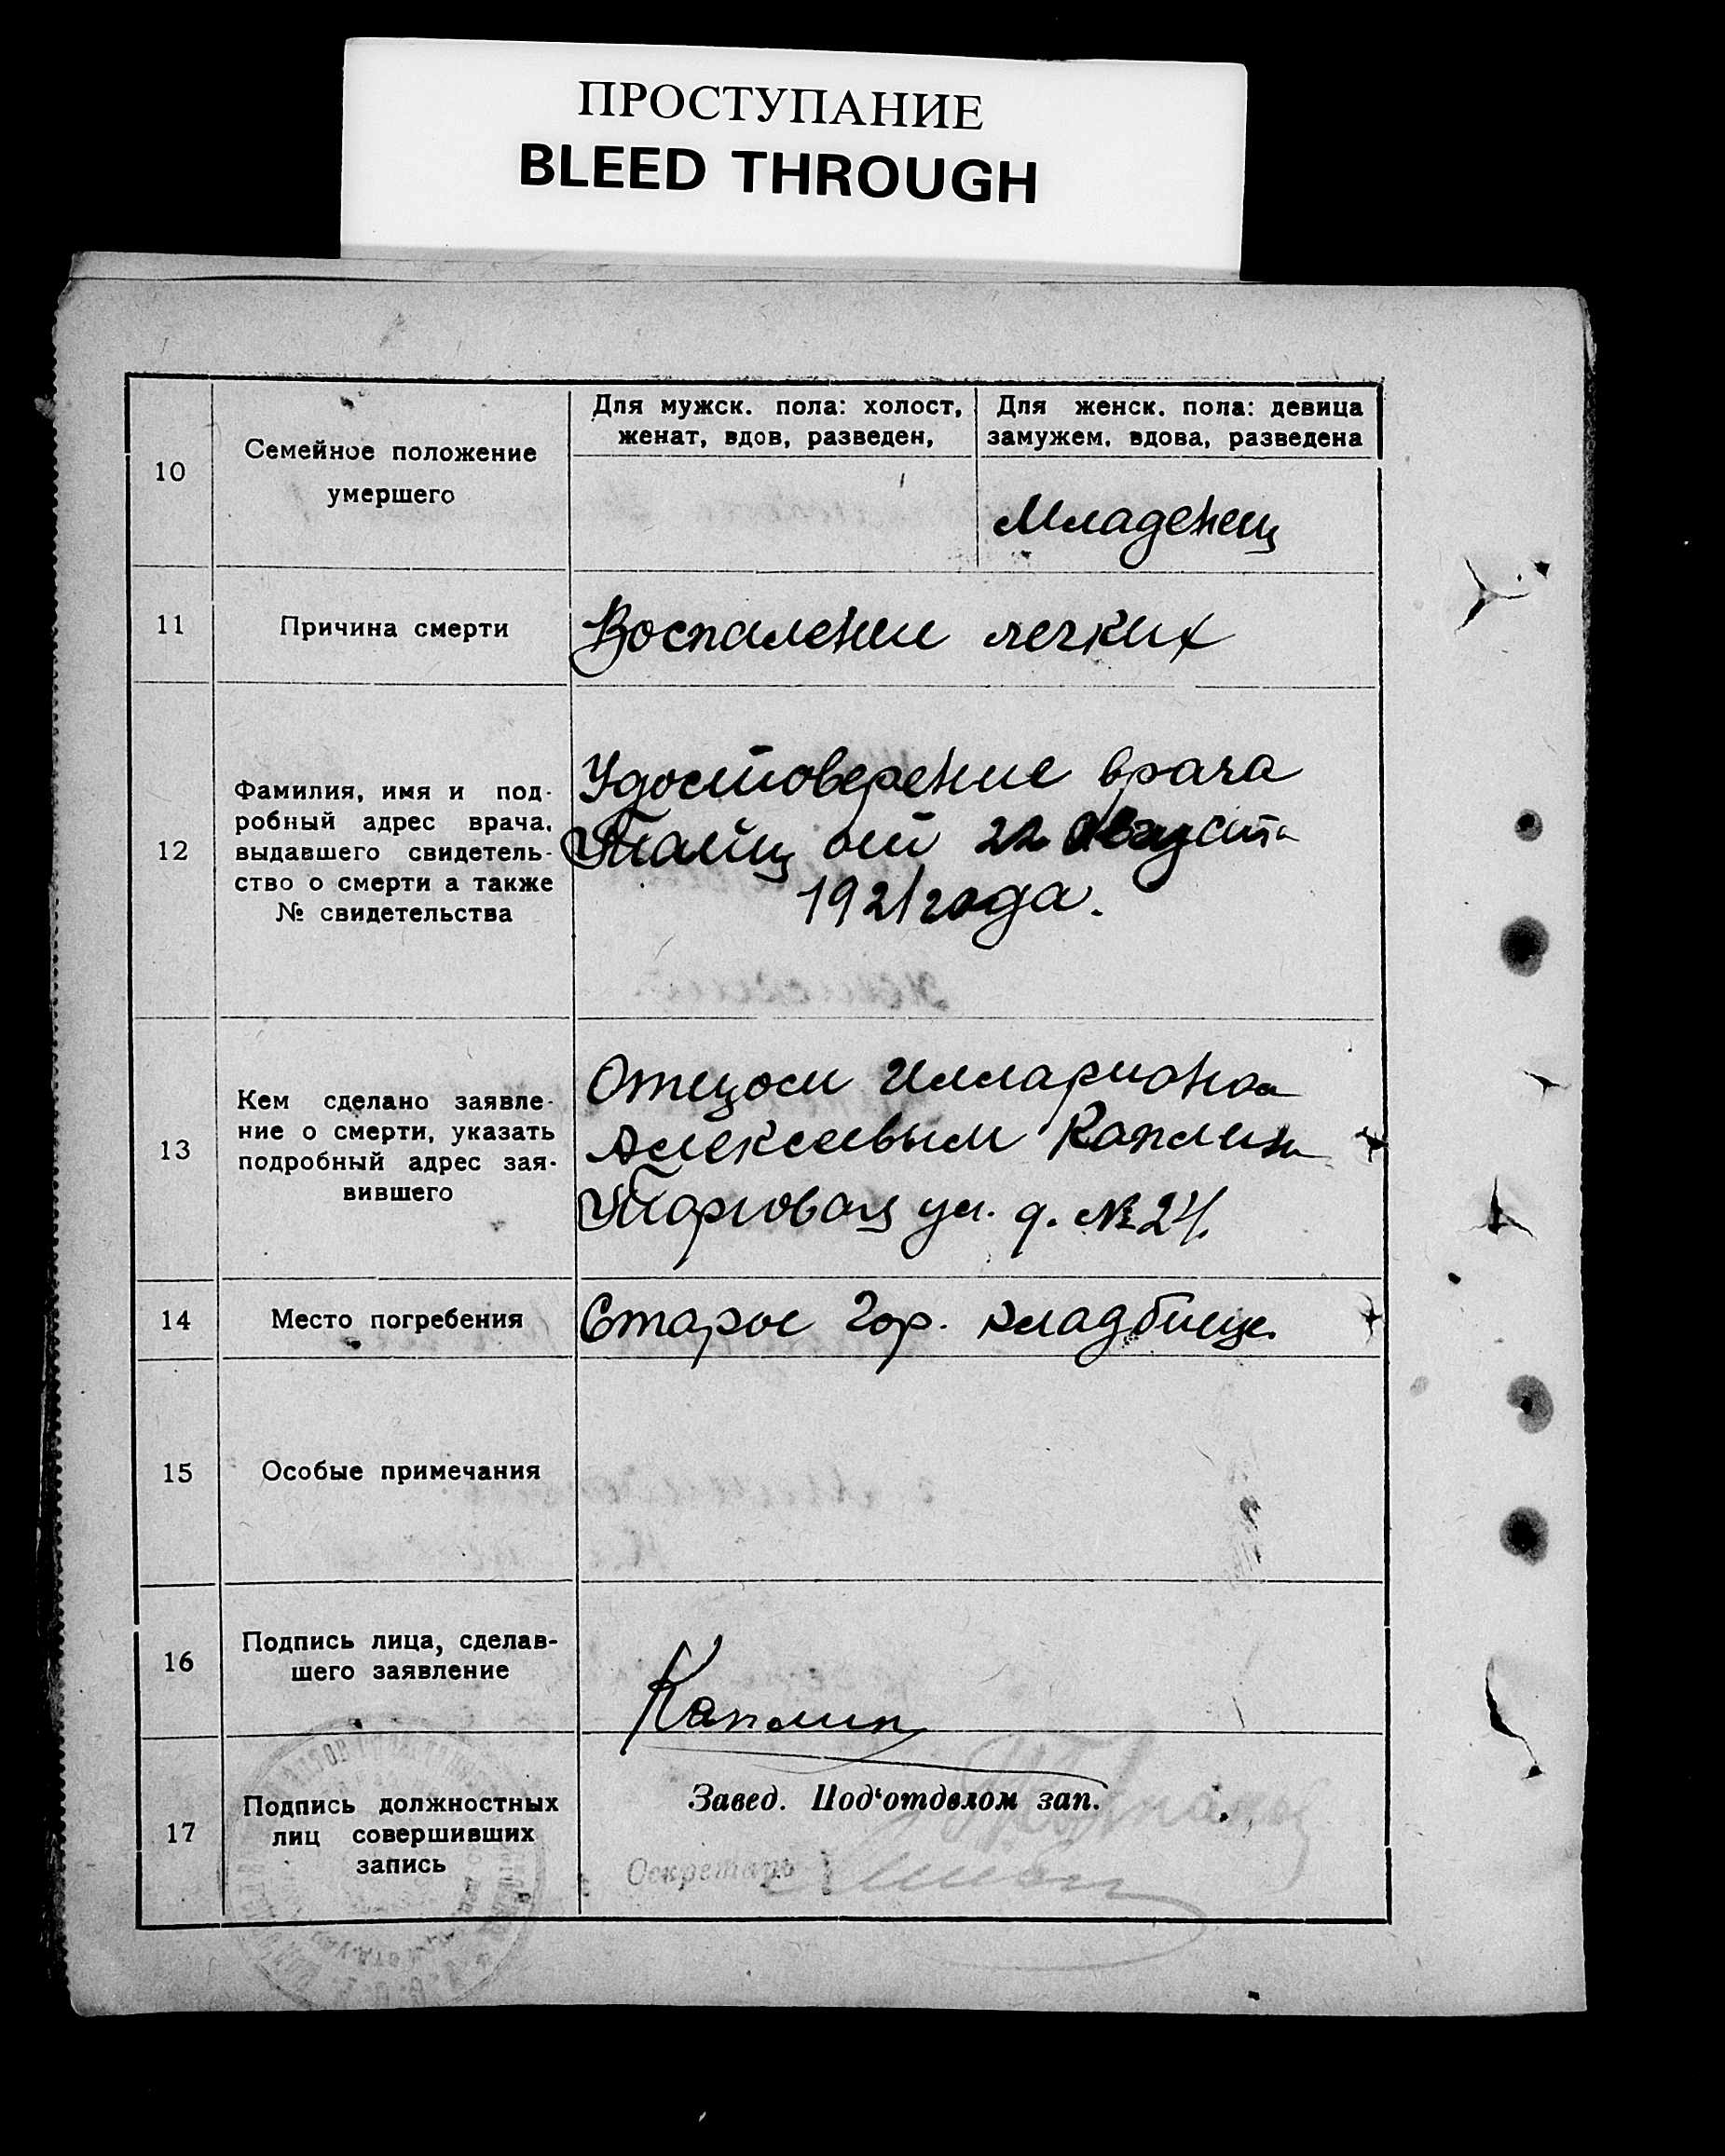 ПРОСТУПАНИЕ
BLEED THROUGH
10
Семейное положение
умершего
Для мужск. пола: холост,
женат, вдов, разведен,
Для женск. пола: девица
замужем, вдова, разведена
Младенец
11
Причина смерти
Воспаление легких
12
Фамилия, имя и под-
робный адрес врача,
выдавшего свидетель-
ство о смерти а также
№ свидетельства
Удостоверение врача
Тайц от 22 августа
1921 года.
13
Кем сделано заявле-
ние о смерти, указать
подробный адрес зая-
вившего
Отцом Иллариона
Алексеевым Каплин
Торговая ул. д. № 24.
14
Место погребения
Старое Гор. кладбище
15
Особые примечания
16
Подпись лица, сделав-
шего заявление
Каплин
17
Подпись должностных
лиц совершивших
запись
Завед. Под'отделом зап.
Секретарь